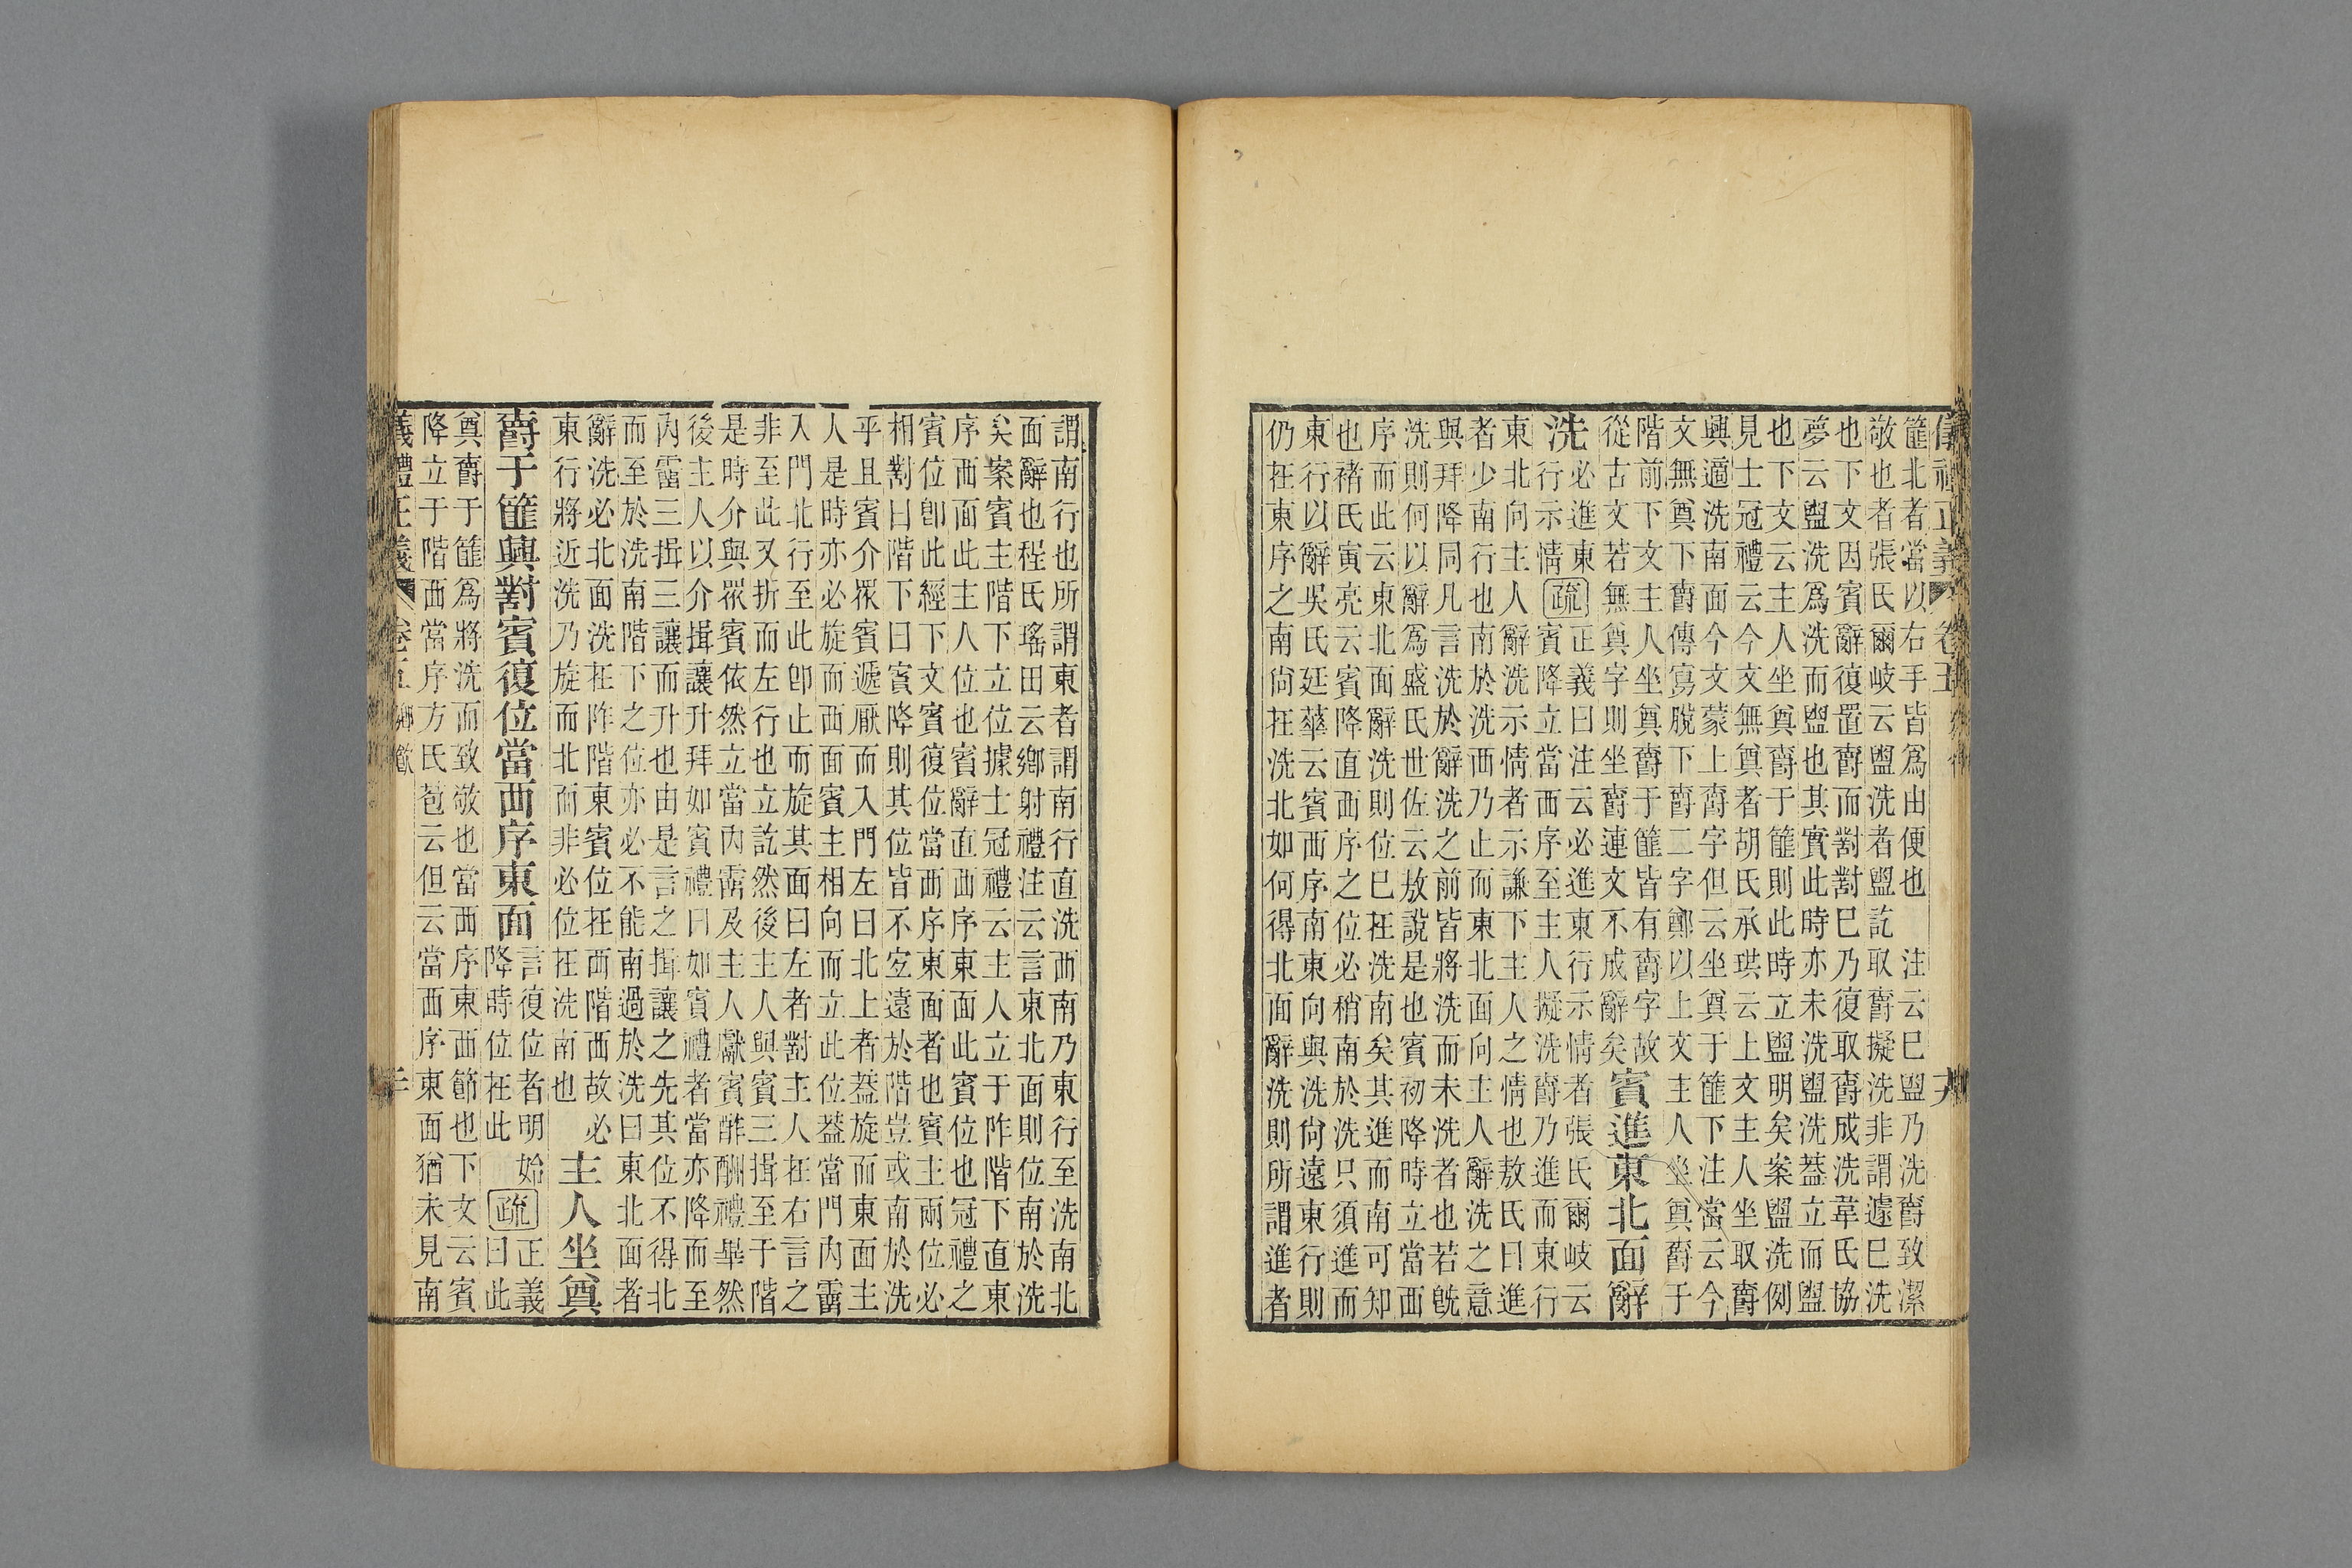 篚北者當以右手皆爲由便也　注云巳盥乃洗爵致潔
敬也者張氏爾岐云盥洗者盥訖取爵擬洗非謂遽巳洗
也下文因賓辭復置爵而對對巳乃復取爵成洗葦氏協
夢云盥洗爲洗而盥也其實此時亦未洗盥洗葢立而盥
也下文云主人坐奠爵于篚則此時立盥明矣案盥洗例
見士冠禮云今文無奠者胡氏承珙云上文主人坐取爵
興適洗南面今文蒙上爵字但云坐奠于篚下注當云今
文無奠下爵傳寫脫下爵二字鄭以上文主人坐奠爵于
階前下文主人坐奠爵于篚皆有爵字故
從古文若無奠字則坐爵連文不成辭矣
賓進東北面辭
洗
必進東
行示情
疏
正義曰注云必進東行示情者張氏爾岐云
賓降立當西序至主人擬洗爵乃進而東行
東北向主人辭洗示情者示謙下主人之情也敖氏曰進
者少南行也南於洗西乃止而東北面向主人辭洗之意
與拜降同凡言洗於辭洗之前皆將洗而未洗者也若旣
洗則何以辭爲盛氏世佐云敖說是也賓初降時立當西
序而此云東北面辭洗則位巳在洗南矣其進而南可知
也褚氏寅亮云賓降直西序之位必稍南於洗只須進而
東行以辭吳氏廷華云賓西序南東向與洗尙遠東行則
仍在東序之南尙在洗北如何得北面辭洗則所謂進者
謂南行也所謂東者謂南行直洗西南乃東行至洗南北
面辭也程氏瑤田云鄉射禮注云言東北面則位南於洗
矣案賓主階下立位據士冠禮云主人立于阼階下直東
序西面此主人位也賓辭直西序東面此賓位也冠禮之
賓位卽此經下文賓復位當西序東面者也賓主兩位必
相對曰階下曰賓降則其位皆不宜遠於階豈或南於洗
乎且賓介眾賓遞厭而入門左曰北上者葢旋而東面主
人是時亦必旋而西面賓主相向而立此位葢當門內霤
入門北行至此卽止而旋其面曰左者對主人在右言之
非至此又折而左行也立訖然後主人與賓三揖至于階
是時介與眾賓依然立當內霤及主人獻賓酢酬禮畢然
後主人以介揖讓升拜如賓禮曰如賓禮者當亦降而至
內霤三揖三讓而升也由是言之揖讓之先其位不得北
而至於洗南階下之位亦必不能南過於洗曰東北面者
辭洗必北面洗在阼階東賓位在西階西故必
東行將近洗乃旋而北而非必位在洗南也
主人坐奠
爵于篚興對賓復位當西序東面
言復位者明始
降時位在此
疏
正義
曰此
奠爵于篚爲將洗而致敬也當西序東西節也下文云賓
降立于階西當序方氏苞云但云當西序東面猶未見南